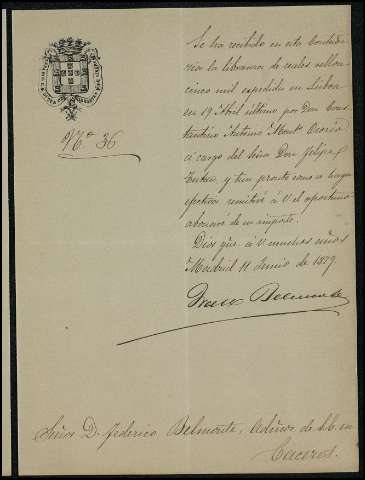 Nº 36
Se ha recibido en esta Contadu-
ria la libranza de reales vellon
cinco mil expedida en Lisboa
en 19 Abril último por Don Cons-
tantino Antonio Osorio
á cargo del Señor Don Felipe
y tan pronto como se haga
efectiva, remitiré á V. el oportuno
abonaré de su importe.
Dios gue. á V. muchos años
Madrid 11 Junio de 1879.
Belmonte
Señor D. Federico Belmonte, Admor. de LL. en
Caceres.